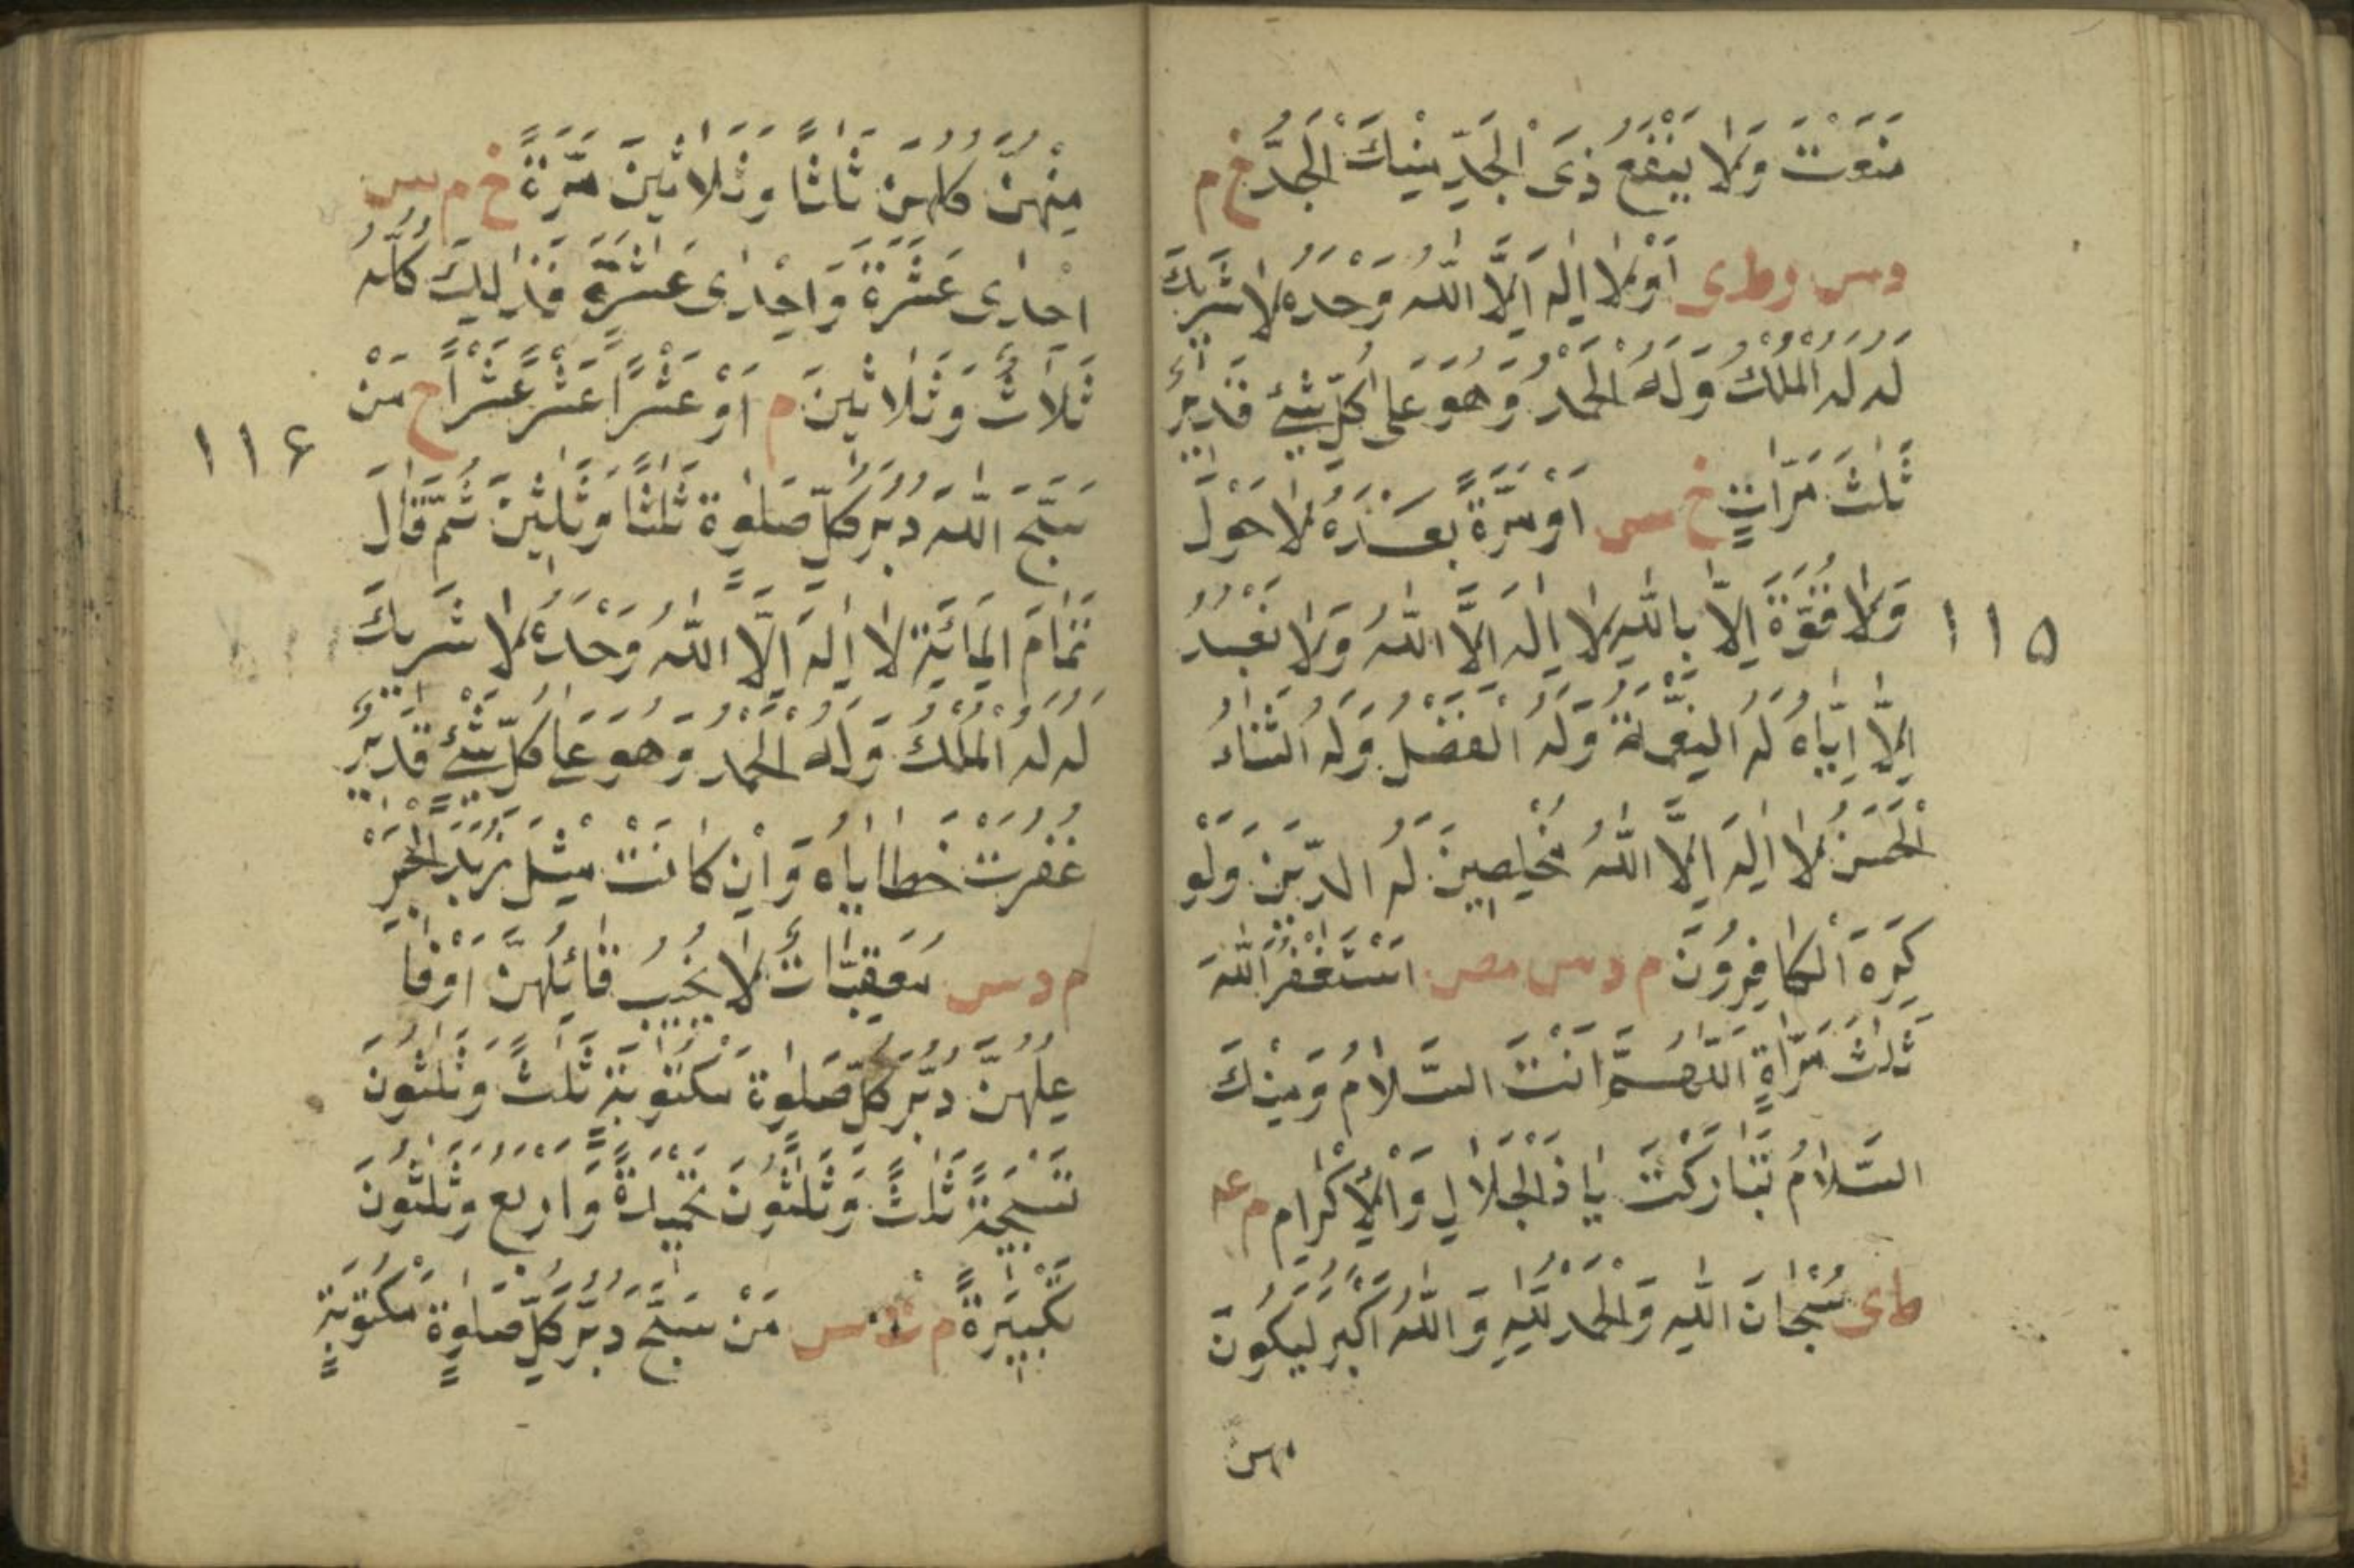 مَنَعْتَ وَلَا يَنْفَعُ ذَى الْجَدِّ مِنْكَ الْجَدُّ خ م
د س ر ط ى اَوْ لَا اِلٰهَ اِلَّا اللّٰهُ وَحْدَهُ لَا شَرِيكَ
لَهُ لَهُ الْمُلْكُ وَلَهُ الْحَمْدُ وَهُوَ عَلٰى كُلِّ شَيْءٍ قَدِيرٌ
ثَلٰثَ مَرَّاتٍ خ س اَوْ مَرَّةً بَعْدَهُ لَا حَوْلَ
وَلَا قُوَّةَ اِلَّا بِاللّٰهِ لَا اِلٰهَ اِلَّا اللّٰهُ وَلَا نَعْبُدُ
١١٥
اِلَّا اِيَّاهُ لَهُ النِّعْمَةُ وَلَهُ الْفَضْلُ وَلَهُ الثَّنَاءُ
الْحَسَنُ لَا اِلٰهَ اِلَّا اللّٰهُ مُخْلِصِينَ لَهُ الدِّينَ وَلَوْ
كَرِهَ الْكَافِرُونَ م د س مص اَسْتَغْفِرُ اللّٰهَ
ثَلٰثَ مَرَّاةٍ اَللّٰهُمَّ اَنْتَ السَّلَامُ وَمِنْكَ
السَّلَامُ تَبَارَكْتَ يَا ذَالْجَلَالِ وَالْاِكْرَامِ م عه
ط ى سُبْحَانَ اللّٰهِ وَالْحَمْدُ لِلّٰهِ وَاللّٰهُ اَكْبَرُ لِيَكُونَ
منهن
مِنْهُنَّ كُلِّهِنَّ ثَلَاثًا وَثَلَاثِينَ مَرَّةً خ م س
اِحْدٰى عَشْرَةَ وَاِحْدٰى عَشْرَةَ فَذٰلِكَ كُلُّهُ
ثَلَاثٌ وَثَلَاثِينَ م اَوْ عَشْرًا عَشْرًا عَشْرًا خ مَنْ
١١٦
سَبَّحَ اللّٰهَ دُبُرَ كُلِّ صَلٰوةٍ ثَلٰثًا وَثَلٰثِينَ ثُمَّ قَالَ
تَمَامَ الْمِائَةِ لَا اِلٰهَ اِلَّا اللّٰهُ وَحْدَهُ لَا شَرِيكَ
لَهُ لَهُ الْمُلْكُ وَلَهُ الْحَمْدُ وَهُوَ عَلٰى كُلِّ شَيْءٍ قَدِيرٌ
غُفِرَتْ خَطَايَاهُ وَاِنْ كَانَتْ مِثْلَ زَبَدِ الْبَحْرِ
م د س مُعَقِّبَاتٌ لَا يَخِيبُ قَائِلُهُنَّ اَوْ فَا
عِلُهُنَّ دُبُرَ كُلِّ صَلٰوةٍ مَكْتُوبَةٍ ثَلٰثٌ وَثَلٰثُونَ
تَسْبِيحَةً ثَلٰثٌ وَثَلٰثُونَ تَحْمِيدَةً وَاَرْبَعٌ وَثَلٰثُونَ
تَكْبِيرَةً م ت س مَنْ سَبَّحَ دُبُرَ كُلِّ صَلٰوةٍ مَكْتُوبَةٍ